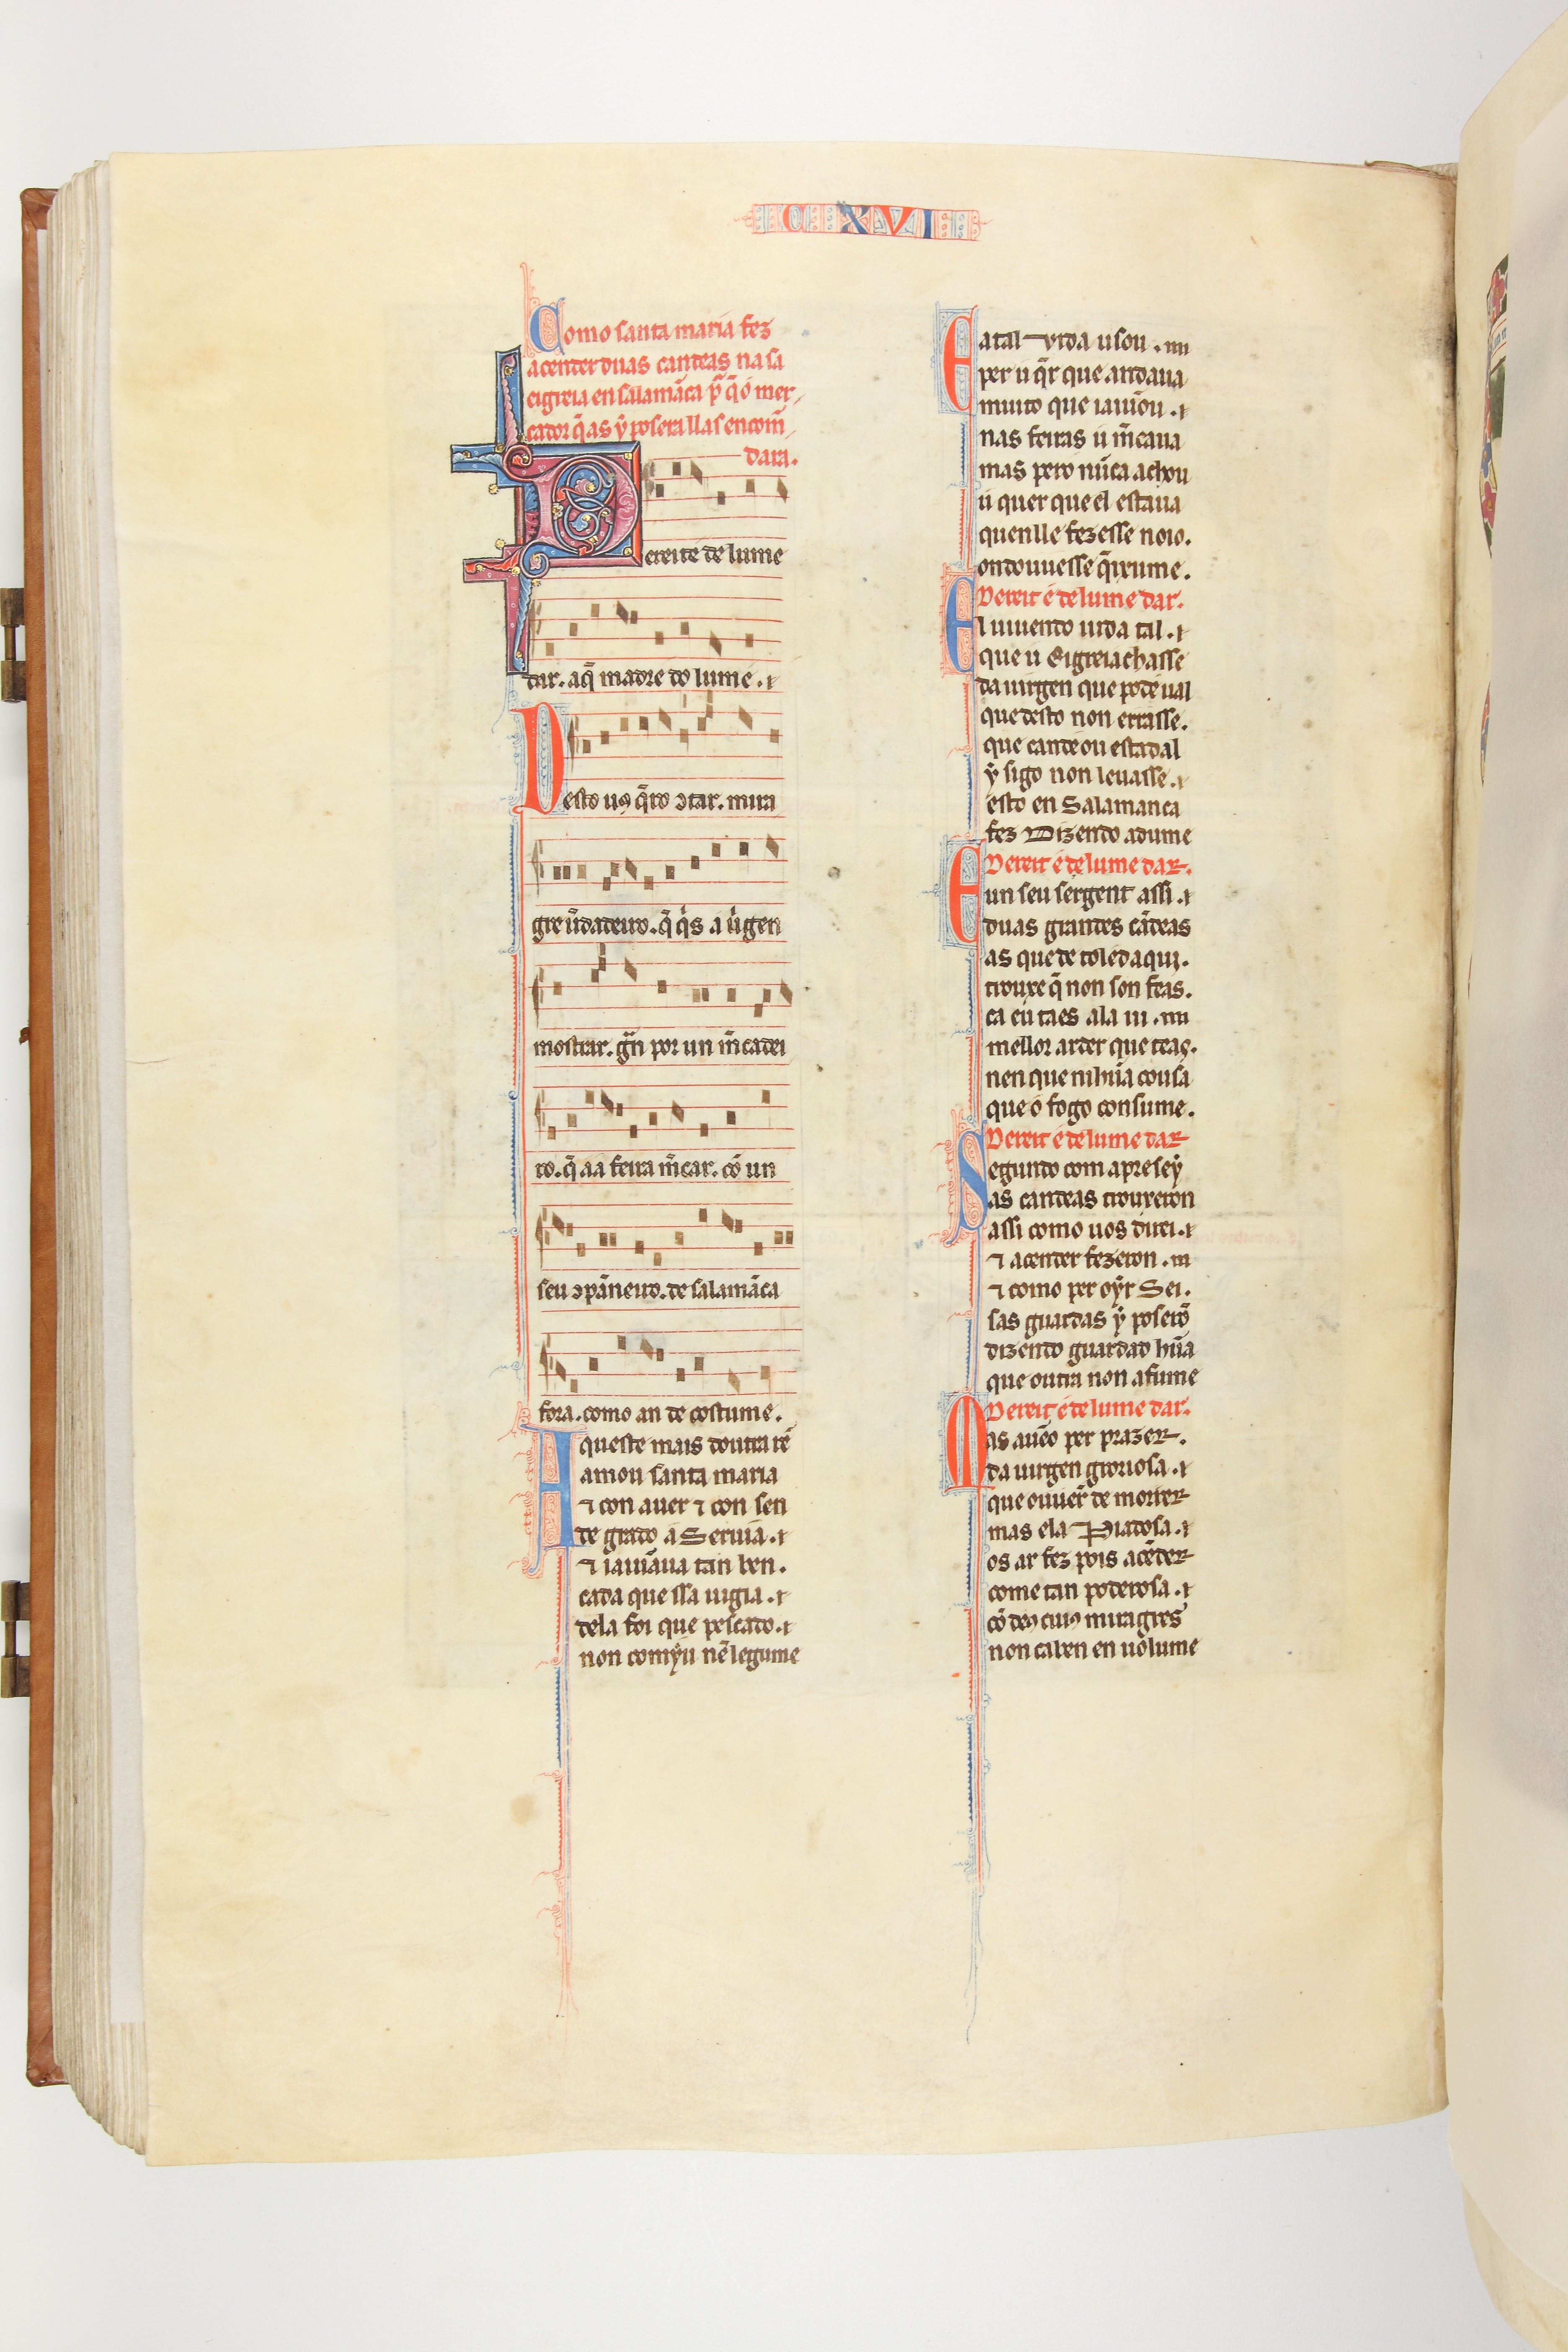 CXVI
Como santa maria fez
acender duas candeas na sa
eigreia en salamãca p̃ q̃ ó mer
cador q̃ as ỹ posera llas encom̃
dara.
Dereit é de lume
dar. a q̃ madre do lume.
Desto uꝯ q̃ro ↄtar. mira
gre u̾dadeiro. q̃ q̇s a uirgen
mostrar. grã̃n por un m̃cadei
ro. q̃ aa feira m̃car. cõ un
seu ↄpãneiro. de salamãca
fora. como an de costume.
Aqueste mais doutra rẽ
amou santa maria
⁊ con auer ⁊ con sen
de grado á Seruia.
⁊ iaiũaua tan ben.
cada que ssa uigia.
dela foi que pescado.
non comỹu nẽ legume
E atal vida usou.
per u q̃r que andaua
muito que iaiũou.
nas feiras ú m̃caua
mas pero nũca achou
ú quer que el estaua
quenlle fezesse noio.
ond ouuesse q̃ixume.
Dereit é de lume dar.
El uiuendo uida tal.
que u Eigreia chasse
da uirgen que pode ual
que desto non errasse.
que cande ou estadal
ỹ sigo non leuasse.
esto en Salamanca
fez Dizendo adume
Dereit é de lume dar.
E un seu sergent assi.
duas grandes cãdeas
as que de toled aqui.
trouxe q̃ non son feas.
ca eu taes ala ui.
mellor arder que teas.
nen que nihũa cousa
que o fogo consume.
Dereit é de lume dar
Segundo com apres eỹ
as candeas trouxeron
assi como uos direi.
⁊ acender fezeron.
⁊ como per oỹr Sei.
sas guardas ỹ poserõ
dizendo guardad hũa
que outra non afume
Dereit é de lume dar.
Mas auẽo per prazer.
da uirgen groriosa.
que ouuer̃ de morrer
mas ela Piadosa.
os ar fez pois acẽder
come tan poderosa.
cõ deꝯ cuiꝯ miragres
non caben en uolume